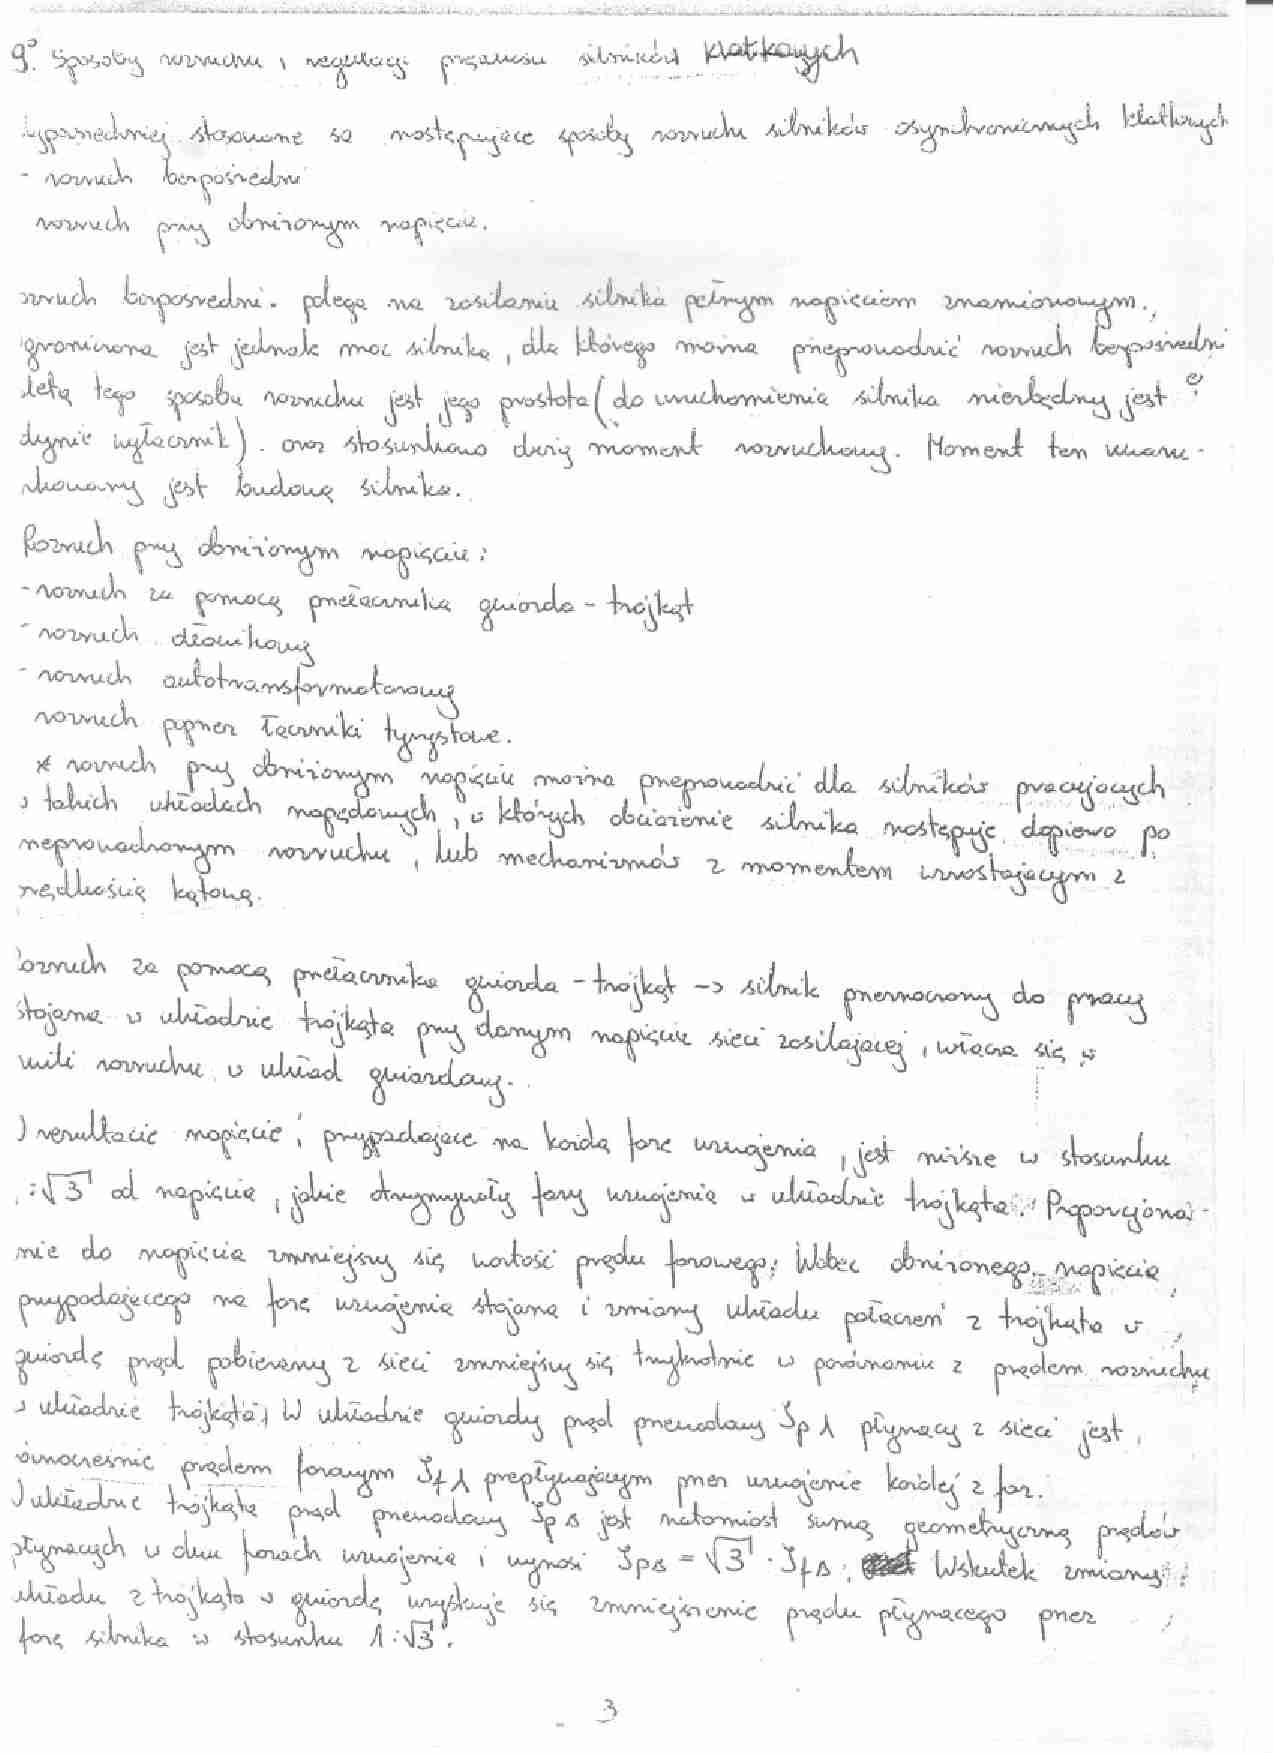 9. Sposoby rozruchu i regulacji prędkości silników klatkowych
najpowszechniej stosowane są następujące sposoby rozruchu silników asynchronicznych klatkowych
- rozruch bezpośredni
rozruch przy obniżonym napięciu.
ozruch bezpośredni. polega na zasilaniu silnika pełnym napięciem znamionowym.
graniczona jest jednak moc silnika, dla którego można przeprowadzić rozruch bezpośredni
letą tego sposobu rozruchu jest jego prostota (do uruchomienia silnika niezbędny jest e
dynie wyłącznik). oraz stosunkowo duży moment rozruchowy. Moment ten uwaru-
nkowany jest budową silnika.
Rozruch przy obniżonym napięciu:
- rozruch za pomocą przełącznika gwiazda - trójkąt
- rozruch dławikowy
- rozruch autotransformatorowy
rozruch poprzez łączniki tyrystowe.
* rozruch przy obniżonym napięciu można przeprowadzić dla silników pracujących
w takich układach napędowych, w których obciążenie silnika następuje dopiero po
rzeprowadzonym rozruchu, lub mechanizmów z momentem wzrostającym z
rędkością kątową.
ozruch za pomocą przełącznika gwiazda - trójkąt -> silnik przeznaczony do pracy
stojana w układzie trójkąta przy danym napięciu sieci zasilającej, włącza się w
wili rozruchu w układ gwiazdowy.
W rezultacie napięcie, przypadające na każdą fazę uzwojenia, jest niższe w stosunku
:√3 od napięcia, jakie otrzymywały fazy uzwojenia w układzie trójkąta. Proporcjonal-
nie do napięcia zmniejszy się wartość prądu fazowego; Wobec obniżonego napięcia
przypadającego na fazę uzwojenia stojana i zmiany układu połączeń z trójkąta w
gwiazdę prąd pobierany z sieci zmniejszy się trzykrotnie w porównaniu z prądem rozruchu
w układzie trójkąta; W układzie gwiazdy prąd przewodowy Ip⅄ płynący z sieci jest
ównocześnie prądem fazowym If⅄ przepływającym przez uzwojenie każdej z faz.
W układzie trójkąta prąd przewodowy IpΔ jest natomiast sumą geometryczną prądów
płynących w dwu fazach uzwojenia i wynosi IpΔ = √3 · IfΔ; Wskutek zmiany
układu z trójkąta w gwiazdę uzyskuje się zmniejszenie prądu płynącego przez
fazę silnika w stosunku 1:√3.
3